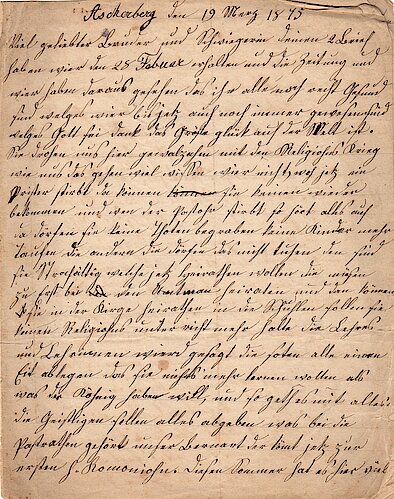 Ascherberg den 19 Merz 1875
Viel geliebter Bruder und Schwiegerin deinen 2 Brief
haben wier den 28 Febuar erhalten und die Zeitung und
wier haben daraus gesehen das ihr alle noch recht Gesund
seid welges wier bis jetz auch noch immer gewesen sind
welges Gott sei dank das Groste glück auf der Welt ist.
Sie drohen uns hier gewaltzahm mit den Religiohns Krieg
wie uns das gehen wiel wissen wier nicht, woh jetz ein
Prister stirbt da können sie keinen wieder
bekommen und wen der Pastohr stirbt so hört alles auf
da dörfen sie keine Thoten begraben keine Kinder mehr
taufen die andern die dörfen das nicht tuhen den sind
sie Strafhältig welche jetz heirathen wollen die müsen
zu erst bei den Amtman heiraten und den können
sie in der Kirge heirathen in die Schuhlen sollen sie
keinen Religiohns unter richt mehr halte die Lehrer
und Lehrinnen wierd gesagt die solen alle einen
Eit ablegen das sie nichts mehr lernen wollen als
was der Köhnig haben will, und so geht es mit alles
die Geistligen sollen alles abgeben was bei die
Pastrathen gehört unser Bernart der kömt jetz zur
ersten h. Komoniohn. Diesen Sommer hat es hier viel